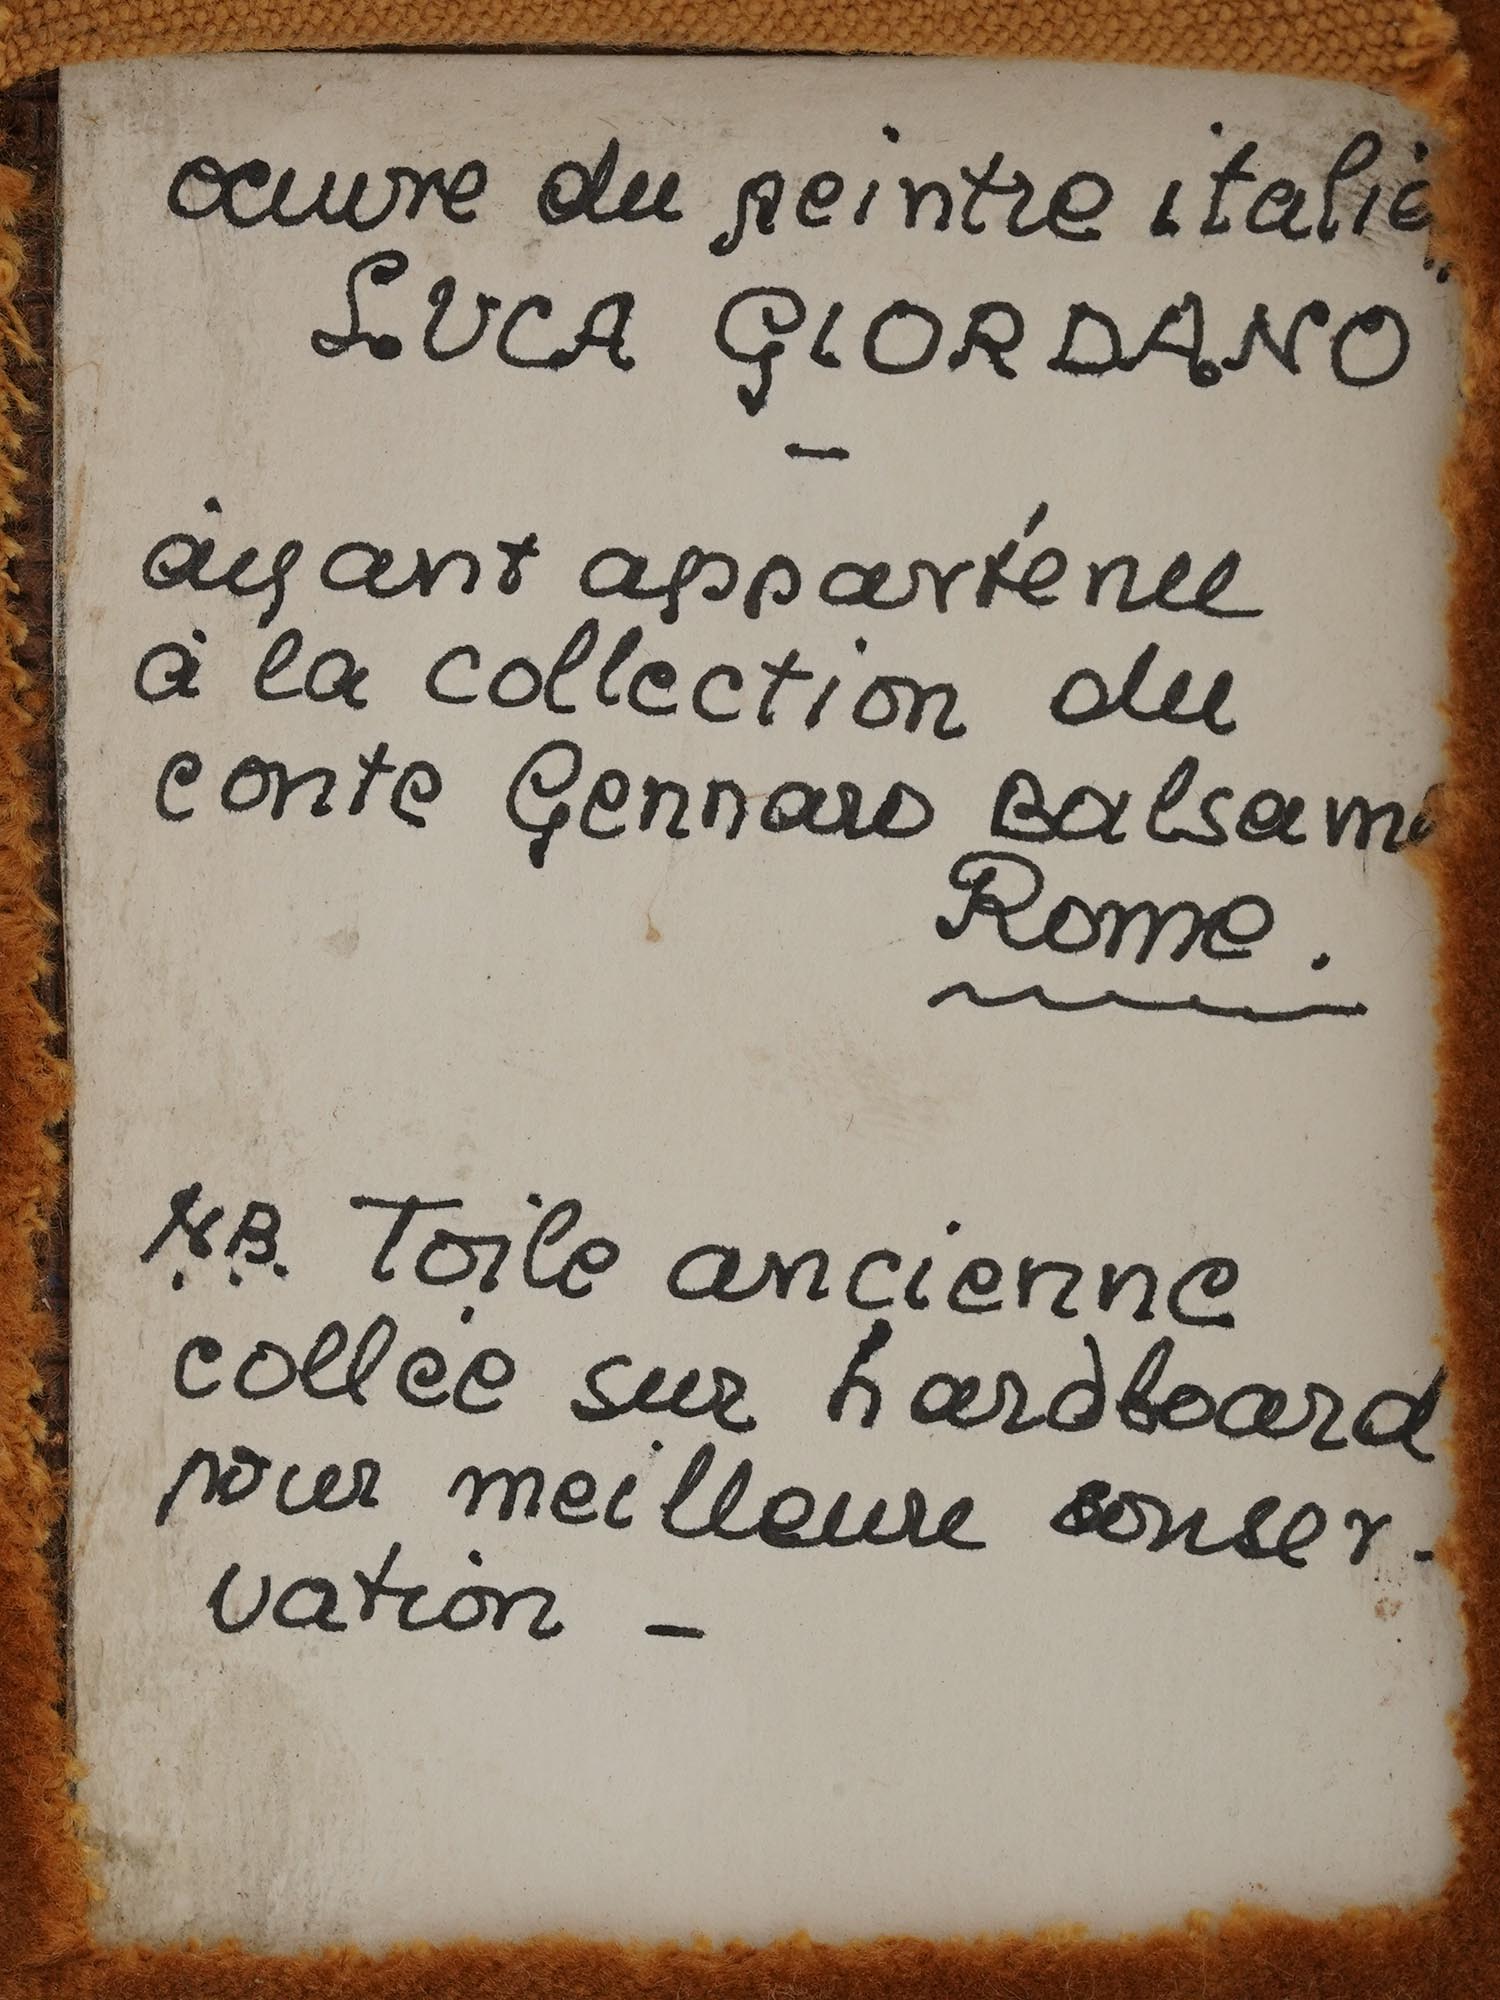 oeuvre du peintre italie
LUCA GIORDANO
—
ayant appartenue
à la collection du
conte Gennaro Balsamo
Rome.
N.B. Toile ancienne
collée sur hardboard
pour meilleure conser-
vation —